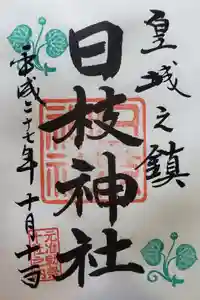 皇城之鎮
日枝神社
平成二十七年十月十一日